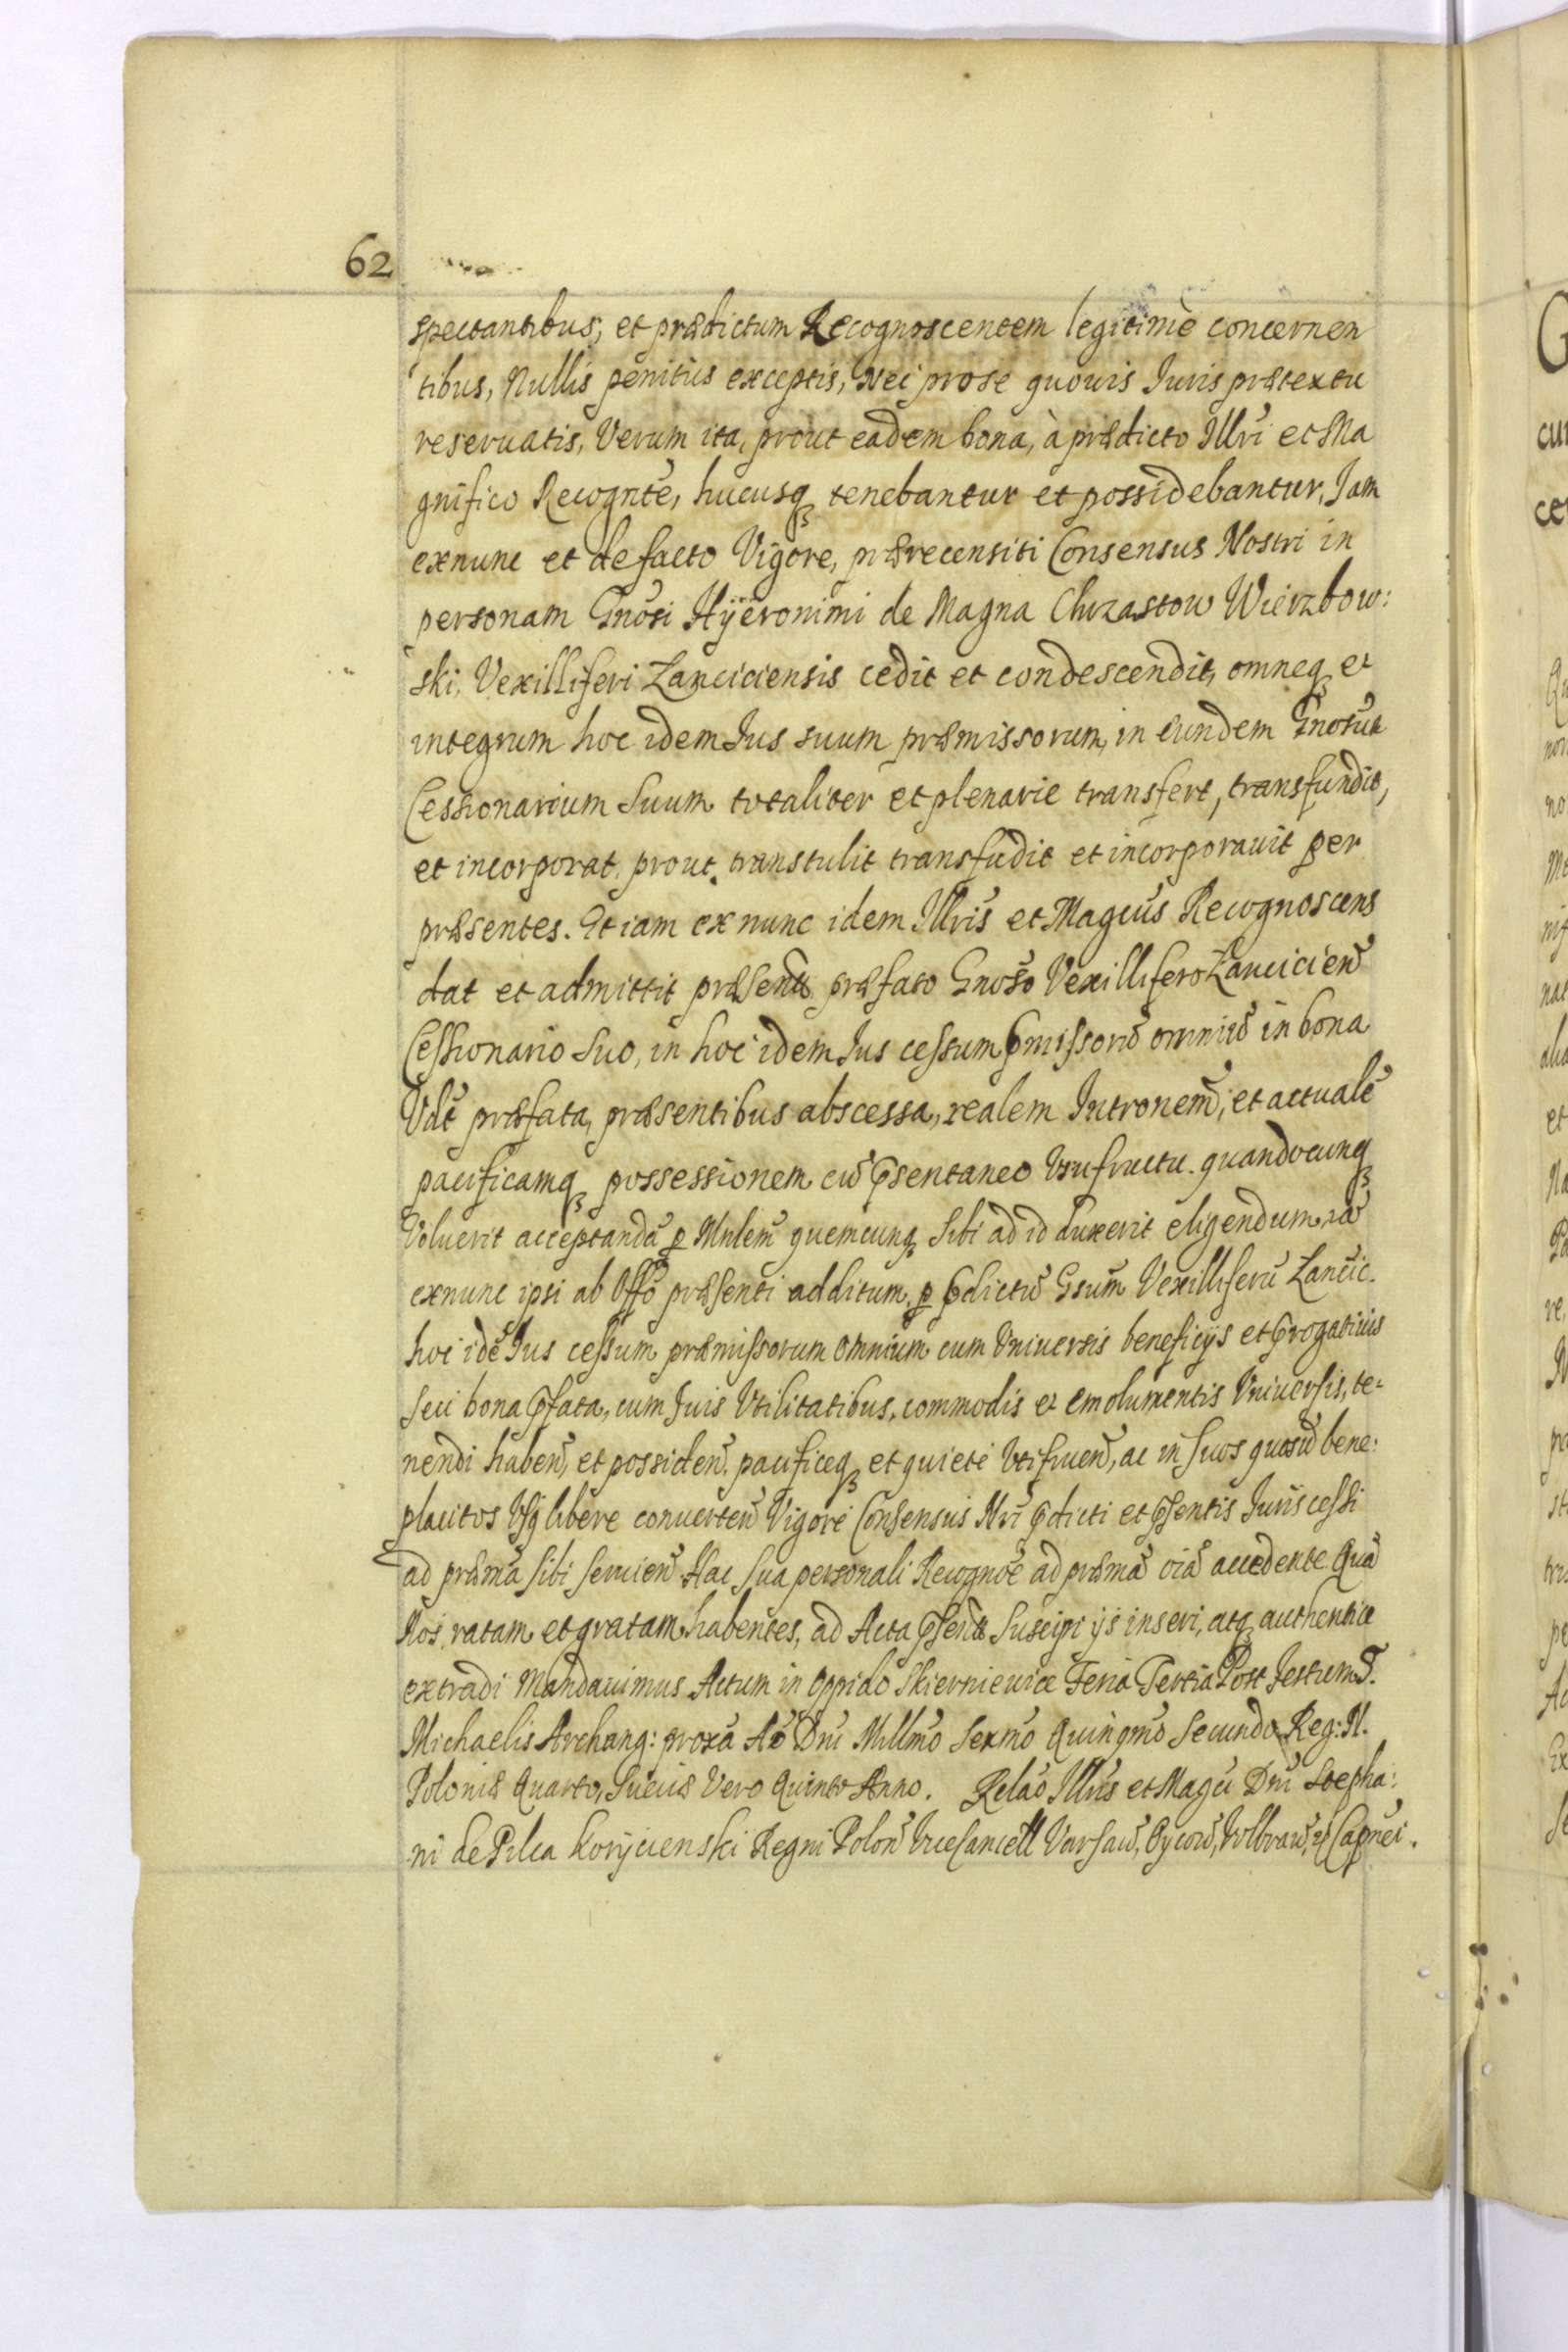 62
spectantibus, et prædictum Recognoscentem legitimè concernen
tibus, Nullis penitùs exceptis, Nec prose quouis Iuris prætextu
reseruatis, Verum ita, prout eadem bona, à prædicto Illri et Ma
gnifico Recognte, hucusq tenebantur et possidebantur, Iam
exnunc et de facto Vigore, prærecensiti Consensus Nostri in
personam Gnosi Hÿeronimi de Magna Chrzastow Wierzbow:
ski, Vexilliferi Lanciciensis cedit et condescendit, omneq et
integrum hoc idem Ius suum præmissorum, in eundem Gnosum
Cessionarium Suum totaliter et plenarie transfert, transfundit,
et incorporat, prout transtulit transfudit et incorporauit per
præsentes. Et iam ex nunc idem Illris et Magcus Recognoscens
dat et admittit præsent præfato Gnoso Vexillifero Lancicien
Cessionario Suo, in hoc idem Ius cessum pmissorũ omniũ in bona
Vdt præfata, præsentibus abscessa, realem Intronem, et actualẽ
pacificamq possessionem cũ psentaneo Vsufructu quandocunq
Voluerit acceptandã p Mnlem quemcunq Sibi ad id duxerit eligendum
exnunc ipsi ab Offo præsenti additum, p pdictũ Gsum Vexilliferũ Lancic.
hoc idẽ Ius cessum præmissorum omnium cum Vniuersis beneficijs et progatiuis
Seu bona pfata, cum suis Vtilitatibus, commodis et emolumentis Vniuersis, te-
nendi haben, et possiden, pacificeq et quietè Vtifruen, ac in suos quosuis bene:
placitos Vsq libere conuerten Vigore Consensus Nri pdicti et psentis Iuris cessi
ad præma sibi seruien Hac Sua personali Recogne ad præma oia accedente Quã
Nos, ratam et gratam habentes, ad Acta psent Suscipi ijs inseri, atq authentice
extradi Mandauimus Actum in Oppido Skierniewice Feria Tertia Post Festum S.
Michaelis Archang: proxa Ao Dni Millmo Sexmo Quinqmo Secundo Reg: N.
Poloniæ Quarto, Sueciæ Vero Quinto Anno. Relao Illris et Magci Dni Stepha:
ni de Pilca Korÿcienski Regni Polon Vicecancell Varsaw, Oycow, Wolbraw, Capnei.